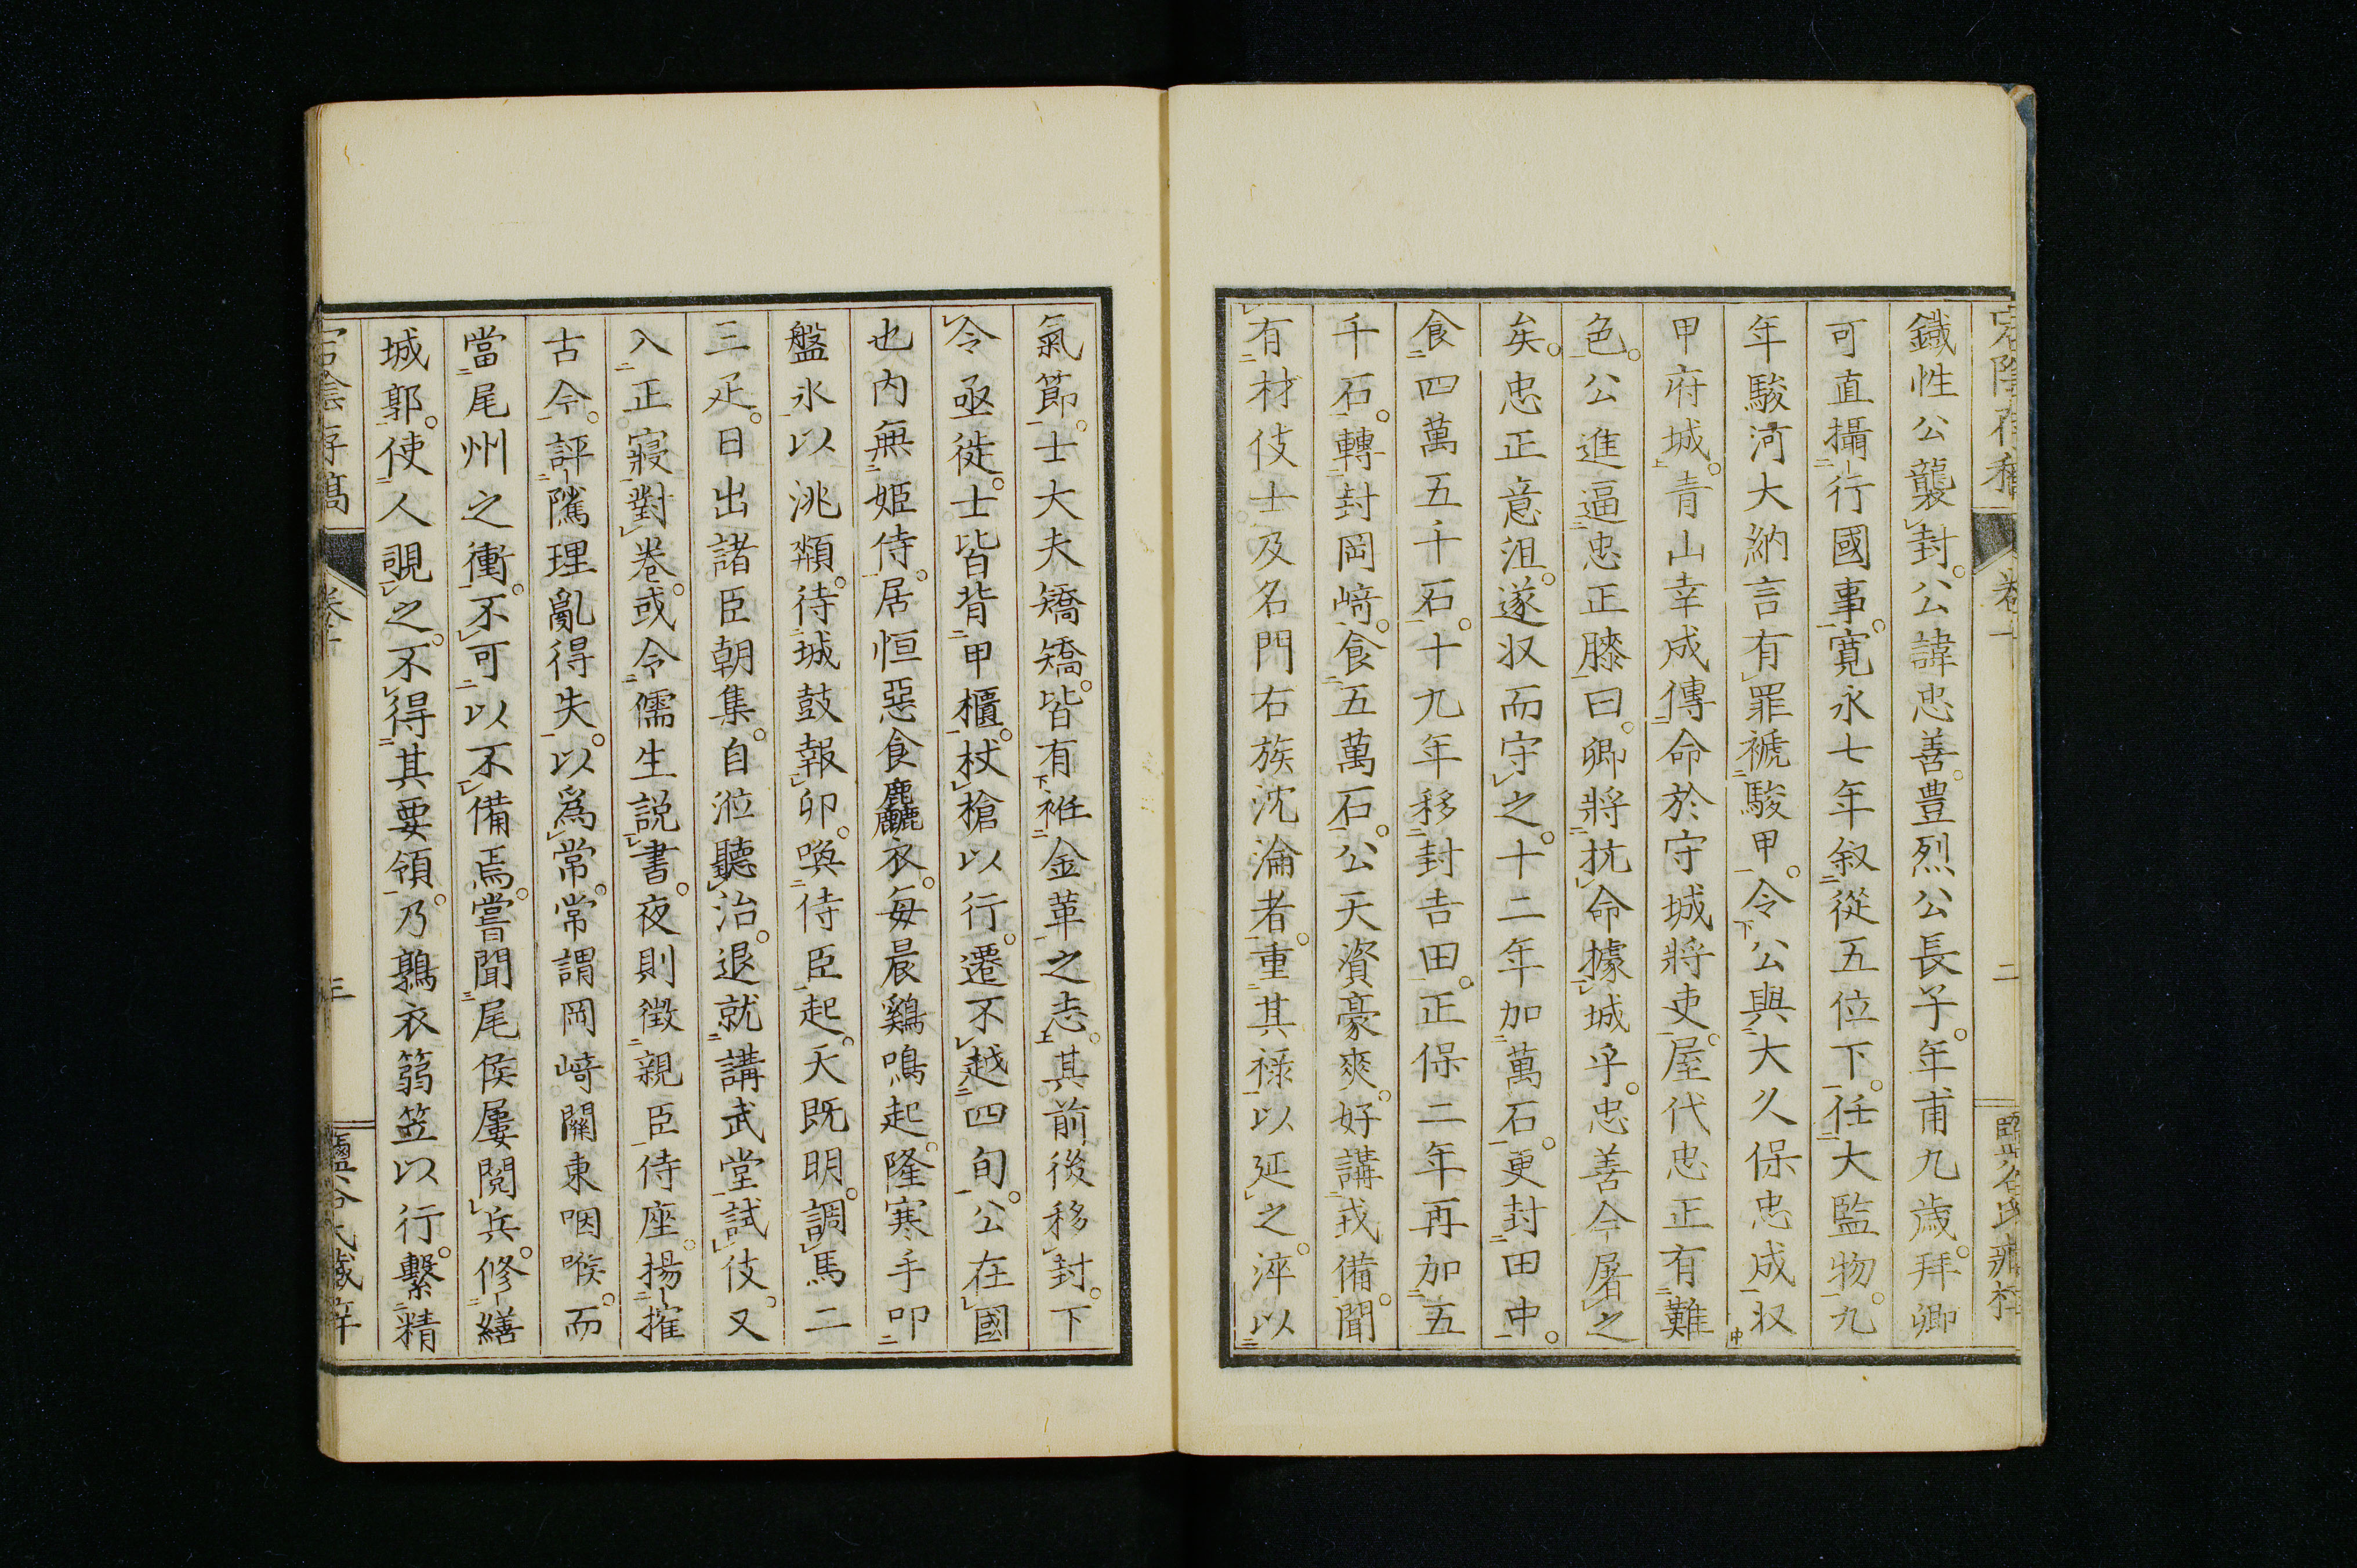 鐵性公襲封。公諱忠善。豊烈公長子。年甫九歳。拜卿
可直攝行國事。寛永七年叙從五位下。任大監物。九
年駿河大納言有罪褫駿甲。令公與大久保忠成収
甲府城。青山幸成傳命於守城將吏。屋代忠正有難
色。公進逼忠正膝曰。卿將抗命據城乎。忠善今屠之
矣。忠正意沮。遂収而守之。十二年加萬石。更封田中。
食四萬五千石。十九年移封吉田。正保二年再加五
千石。轉封岡﨑。食五萬石。公天資豪爽。好講戎備。聞
有材伎士及名門右族沈淪者。重其禄以延之。淬以
氣節。士大夫矯矯。皆有袵金革之志。其前後移封。下
令亟徙。士皆背甲櫃。杖槍以行。遷不越四旬。公在國
也内無姫侍。居恒惡食麤衣。毎晨鷄鳴起。隆寒手叩
盤氷以洮頮。待城鼓報卯。喚侍臣起。天既明。調馬二
三疋。日出諸臣朝集。自涖聽治。退就講武堂試伎。又
入正寢對卷。或令儒生説書。夜則徴親臣侍座。揚搉
古今。評隲理亂得失。以爲常。常謂岡﨑關東咽喉。而
當尾州之衝。不可以不備焉。嘗聞尾侯屢閲兵。修繕
城郭。使人覘之。不得其要領。乃鶉衣篛笠以行。繫精
卷十
三